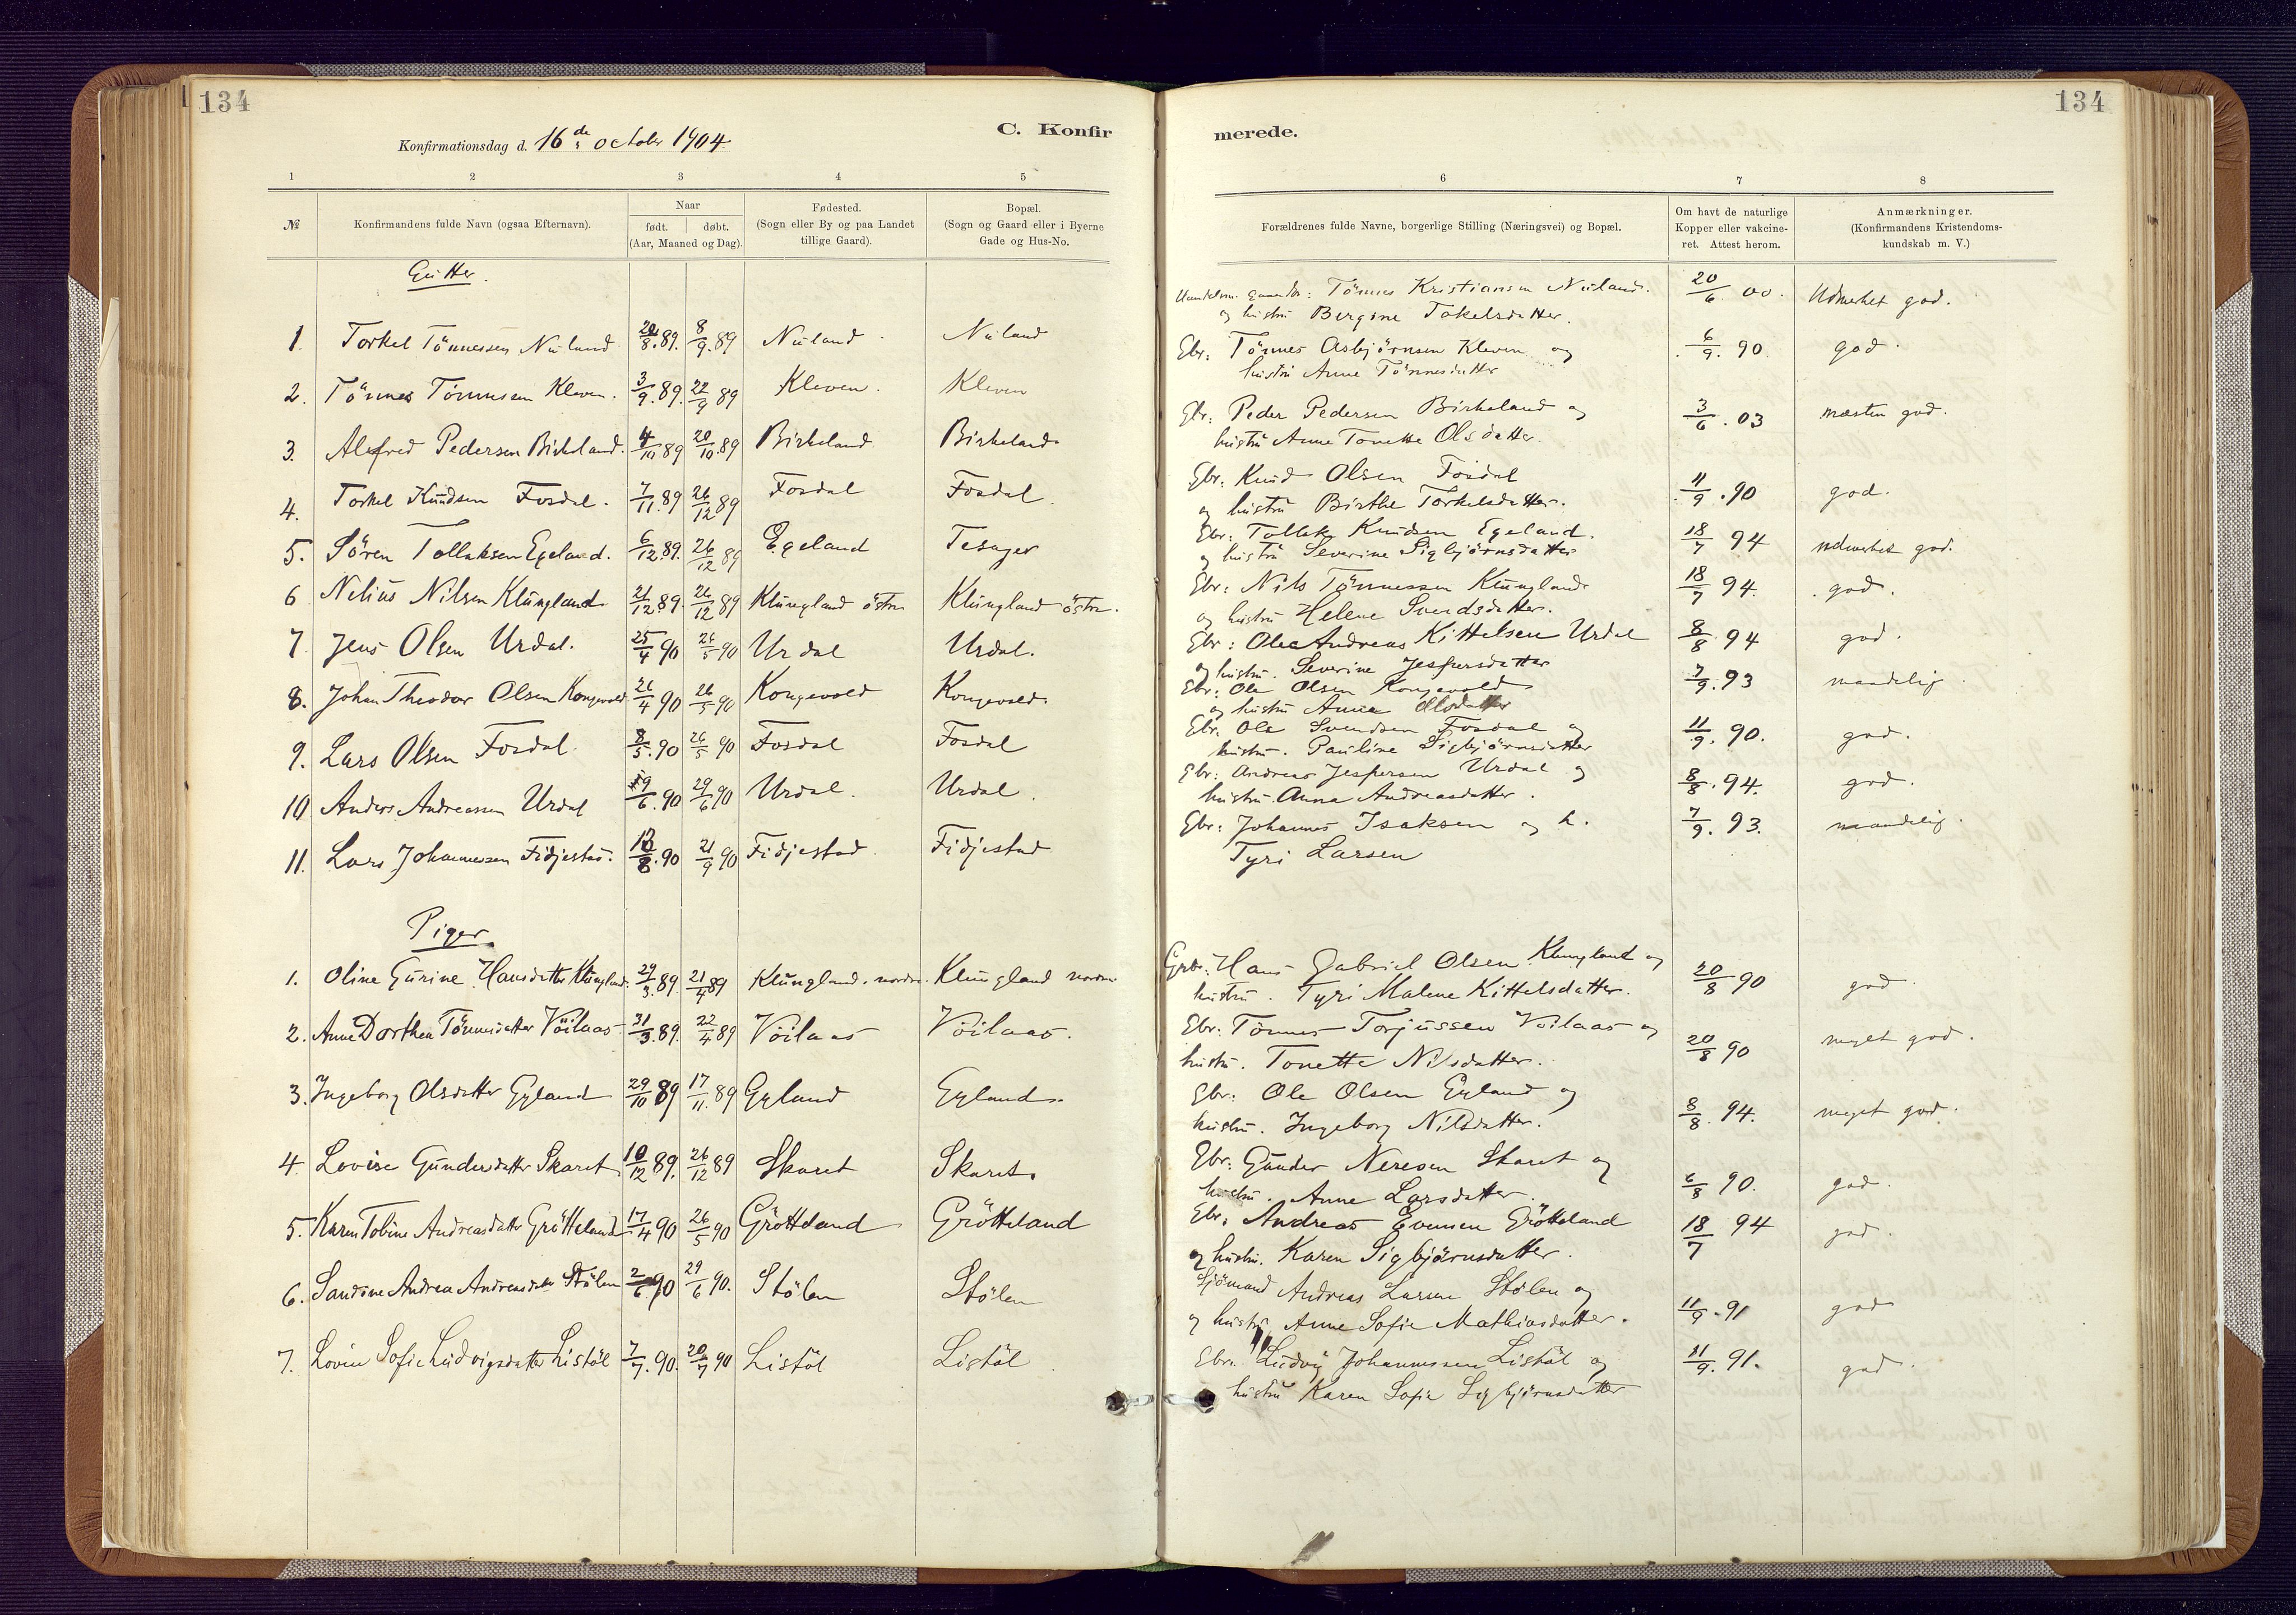 134
Konfirmationsdag d. 16de october 1904
C. Konfir
1 2 3 4 5
№ Konfirmandens fulde Navn (ogsaa Efternavn). Naar født. døbt. (Aar, Maaned og Dag). Fødested. (Sogn eller By og paa Landet tillige Gaard). Bopæl. (Sogn og Gaard eller i Byerne Gade og Hus-No.
Gutter
1. Torkel Tönnessen Nuland 20/8.89. 8/9.89 Nuland Nuland
2. Tönnes Tönnessen Kleven. 3/9.89. 22/9 89 Kleven. Kleven
3. Alfred Pedersen Birkeland. 4/10 89 20/10.89 Birkeland Birkeland
4. Torkel Knudsen Fosdal. 7/11.89 26/12 89 Fosdal Fosdal.
5. Sören Tollaksen Egeland. 6/12.89. 26/12 89 Egeland Tesager
6 Nelius Nilsen Klungland 21/12.89. 26/12 89 Klungland östre Klungland östre.
7. Jens Olsen Urdal. 25/4 90 26/5 90 Urdal Urdal.
8. Johan Theodor Olsen Kongevold 26/4 90 26/5 90 Kongevold Kongevold
9. Lars Olsen Fosdal. 8/5.90 26/5 90 Fosdal Fosdal
10 Anders Andreassen Urdal 19/6.90 29/6 90 Urdal. Urdal.
11. Lars Johannessen Fidjestad. 12/8.90 21/9 90 Fidjestad Fidjestad
Piger
1. Oline Gurine Hansdatter Klungland. 29/3.89. 21/4 89 Klungland. nordre. Klungland nordre
2. Anne Dorthea Tönnesdatter Vöilaas 31/3.89. 22/4 89 Vöilaas Vöilaas.
3. Ingeborg Olsdatter Gyland 29/10 89 17/11.89 Gyland Gyland.
4. Lovise Gundersdatter Skaret 10/12 89. 26/12 89 Skaret Skaret
5. Karen Tobine Andreasdatter Grötteland 17/4 90 26/5 90 Grötteland Grötteland
6. Sandine Andrea Andreasdatter Stölen 2/6 90 29/6 90. Stölen Stölen
7. Lovise Sofie Ludvigsdatter Listöl 7/7.90. 20/7 90 Listöl Listöl
134
merede.
6 7 8
Forældrenes fulde Navne, borgerlige Stilling (Næringsvei) og Bopæl. Om havt de naturlige Kopper eller vakcineret. Attest herom. Anmærkninger. (Konfirmandens Kristendomskundskab m. V.)
Tönnes Kristiansen Nuland. 20/6.00. Udmerket god.
og hustru Bergine Tokelsdatter.
Gbr: Tönnes Asbjörnsen Kleven og 6/9.90. god.
hustru Anne Tönnesdatter
Gbr: Peder Pedersen Birkeland og 3/6.03 næsten god.
hustru Anne Tonette Olsdatter.
Gbr: Knud Olsen Fosdal
og hustru Birthe Torkelsdatter. 11/9.90 god.
Gbr: Tollak Knudsen Egeland. 18/7 94 udmerket god.
og hustru Severine Sigbjörnsdatter
Gbr: Nils Tönnessen Klungland 18/7 94. god.
og hustru Helene Svendsdatter.
Gbr: Ole Andreas Kittelsen Urdal 8/8.94 god.
og hustru. Severine Jespersdatter
Gbr: Ole Olsen Kongevold 7/9.93 maadelig.
og hustru Anna Olsdatter
Gbr. Ole Svendsen Fosdal og 11/9.90. god.
hustru. Pauline Sigbjörnsdatter
Gbr: Andreas Jespersen Urdal og 8/8.94. god.
hustru. Anna Andreasdatter.
Gbr: Johannes Isaksen og h. 7/9.93. maadelig.
Tyri Larsen
Gbr: Hans Gabriel Olsen Klungland og 20/8 90 god
hustru. Tyri Malene Kittelsdatter.
Gbr: Tönnes Torjussen Vöilaas og 20/8 90 meget god.
hustru. Tonette Nilsdatter.
Gbr: Ole Olsen Gyland og 8/8.94. meget god.
hustru. Ingeborg Nilsdatter.
Gbr: Gunder Neresen Skaret og 6/8 90. god.
hustru. Anne Larsdatter.
Gbr: Andreas Evensen Grötteland 18/7 94 god.
og hustru. Karen Sigbjörnsdatter.
Sjömand Andreas Larsen Stölen og 11/9.91 god
og hustru Anne Sofie Mathiasdatter.
Gbr. Ludvig Johannessen Listöl og 11/9.91. god.
hustru Karen Sofie Sigbjörnsdatter